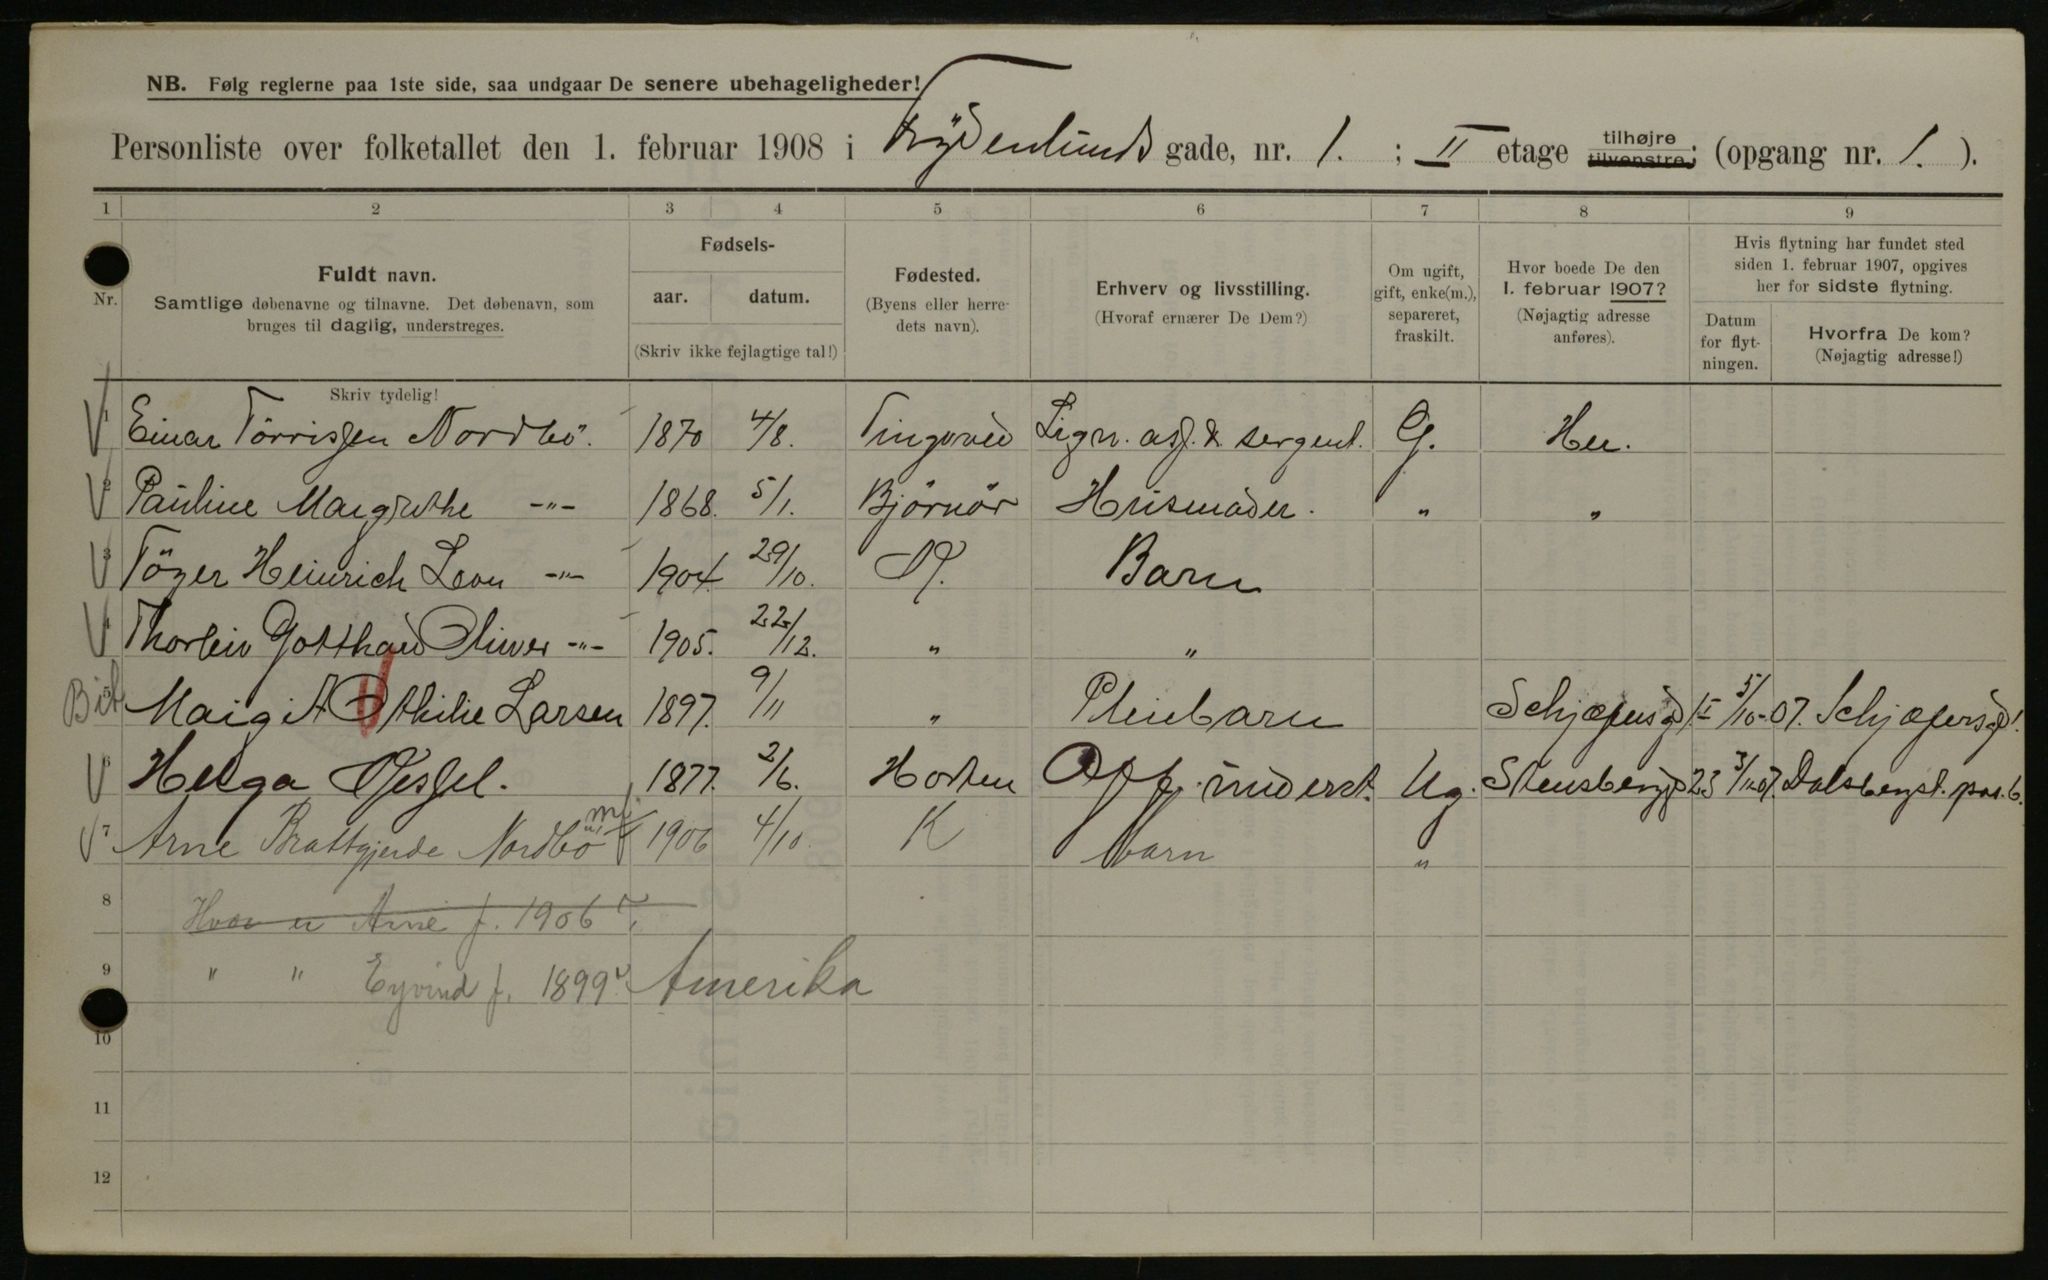 NB. Følg reglerne paa 1ste side, saa undgaar De senere ubehageligheder!
Personliste over folketallet den 1. februar 1908 i Frydenlunds gade, nr. 1. ; II etage tilhøjre tilvenstre; (opgang nr. 1. ).
1 2 3 4 5 6 7 8 9
Nr.
Fuldt navn.
Samtlige døbenavne og tilnavne. Det døbenavn, som
bruges til daglig, understreges.
Skriv tydelig!
Fødsels-
aar. datum.
(Skriv ikke fejlagtige tal!)
Fødested.
(Byens eller herre-
dets navn).
Erhverv og livsstilling.
(Hvoraf ernærer De Dem?)
Om ugift,
gift, enke(m.),
separeret,
fraskilt.
Hvor boede De den
1. februar 1907?
(Nøjagtig adresse
anføres).
Hvis flytning har fundet sted
siden 1. februar 1907, opgives
her for sidste flytning.
Datum
for flyt-
ningen.
Hvorfra De kom?
(Nøjagtig adresse!)
1 Einar Törrissen Nordbö. 1870 4/8. Tingvold Lign. ass. & sergent. G. Her.
2 Pauline Margrethe -"- 1868. 5/1. Björnör Husmoder. " "
3 Töger Heinrich Leon -"- 1904. 29/10. K. Barn
4 Thorleiv Gotthard Oliver -"- 1905. 22/12. " "
5 Margit Othilie Larsen 1897. 9/11 " Pleiebarn 5/10-07.
6 Helga 1877. 2/6. Horten Ug. Stensberggd 23 3/11.07. Dalsbergst.
7 Arne Brattgjerde Nordbö m 1906 4/10. K barn "
8 Hvor er Arne f. 1906?
9 " " Eyvind f. 1899? Amerika
10
11
12